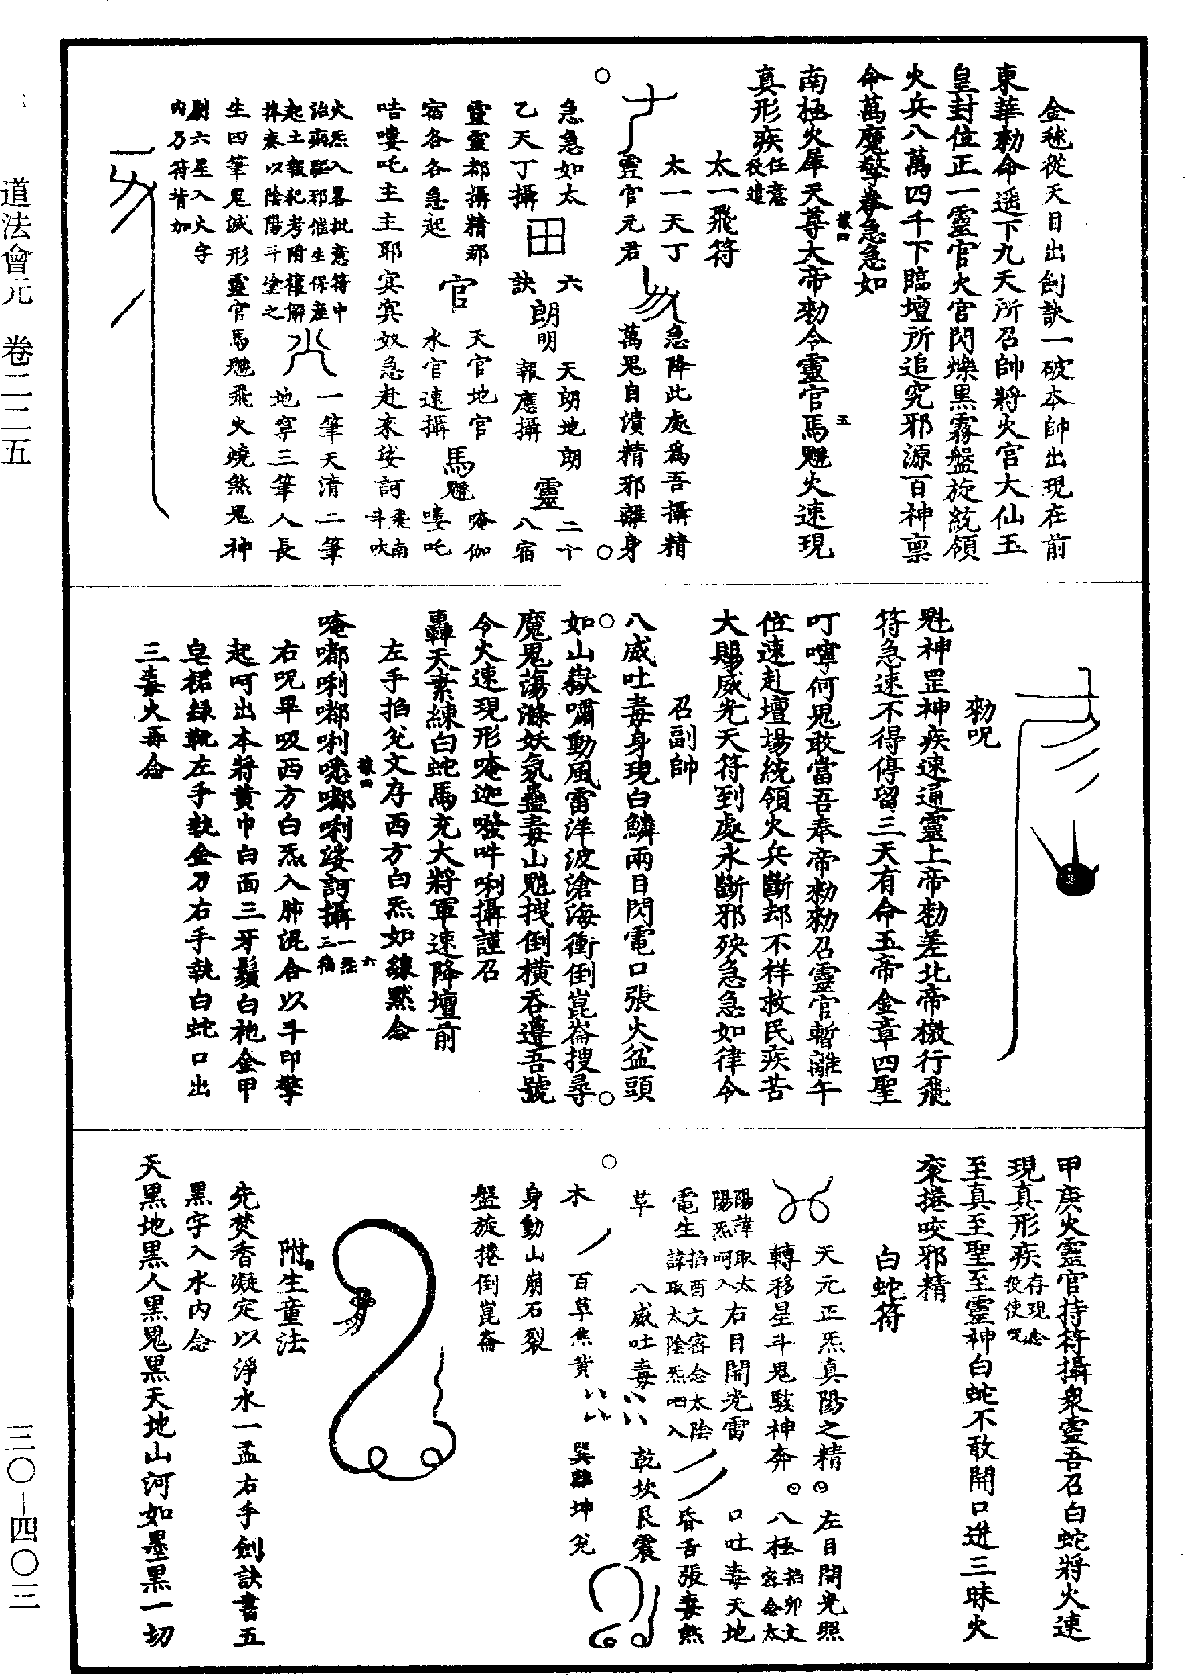 金毬從天目出劍訣一破本帥出現在前
東華勑命遥下九天所召帥將火官大仙玉
皇封位正一靈官火官閃爍黑霧盤旋統領
火兵八萬四千下臨壇所追究邪源百神禀
命萬魔擎拳急急如
南極火犀天尊大帝勑令靈官馬𩳐火速現
真形疾任意役遣
太一飛符
太一天丁 急降此處爲吾攝精
靈官元君 萬鬼自潰精邪離身
急急如太 田 六 朗 天朗地朗 靈 二十
乙天丁攝 訣 明 報應攝 八宿
靈靈都攝精那 官 天官地官 馬𩳐 唵伽
宿各各急起 水官速攝 嘍吒
咭嘍吒主主耶宾宾奴急赴來娑訶飛南斗吠
火炁入畧批意符中治病驅邪催生保產 一筆天清二筆
起土報犯考附禳解拜奏以陰陽斗塗之 地寧三筆人長
生四筆鬼滅形靈官馬𩳐飛火燒煞鬼神
罡六星入火字
内乃符背加
勑呪
魁神罡神疾速通靈上帝勑差北帝檄行飛
符急速不得停留三天有命五帝金章四聖
叮嚀何鬼敢當吾奉帝勑勑召靈官暫離午
位速赴壇場統領火兵斷却不祥救民疾苦
大賜威光天符到處永斷邪殃急急如律令
召副帥
八威吐毒身現白鱗兩目閃電口張火盆頭
如山嶽嘯動風雷洋波滄海衝倒崑崙搜尋
魔鬼蕩滌妖氛蠱毒山魈拽倒横吞遵吾號
令火速現形唵迦㘑吽唎攝謹召
轟天素練白蛇馬充大將軍速降壇前
左手掐兊文存西方白炁如練黙念
唵嘟唎嘟唎㗭嘟唎娑訶攝一炁三徧
右呪畢吸西方白炁入肺混合以斗印擎
起呵出本將黄巾白面三牙鬚白袍金甲
皂裙綠靴左手執金刀右手執白蛇口出
三毒火再念
甲庚火靈官持符攝衆靈吾召白蛇將火速
現真形疾存現念役使呪
至真至聖至靈神白蛇不敢開口进三昧火
衮捲咬邪精
白蛇符
天元正炁真陽之精 左目開光照
轉移星斗鬼駭神奔 八極掐卯文密念太
陽諱取太陽炁呵入右目開光雷 口吐毒天地
電生掐酉文密念太陰諱取太陰炁呬入 昏吾張毒煞
草 八威吐毒 乾坎艮震
木 百草焦黄 巽離坤兊
身動山崩石裂
盤旋捲倒崑崙
附生童法
先焚香凝定以淨水一盂右手劍訣書五
黑字入水内念
天黑地黑人黑鬼黑天地山河如墨黑一切
道法會元 卷二二五
三〇—四〇三